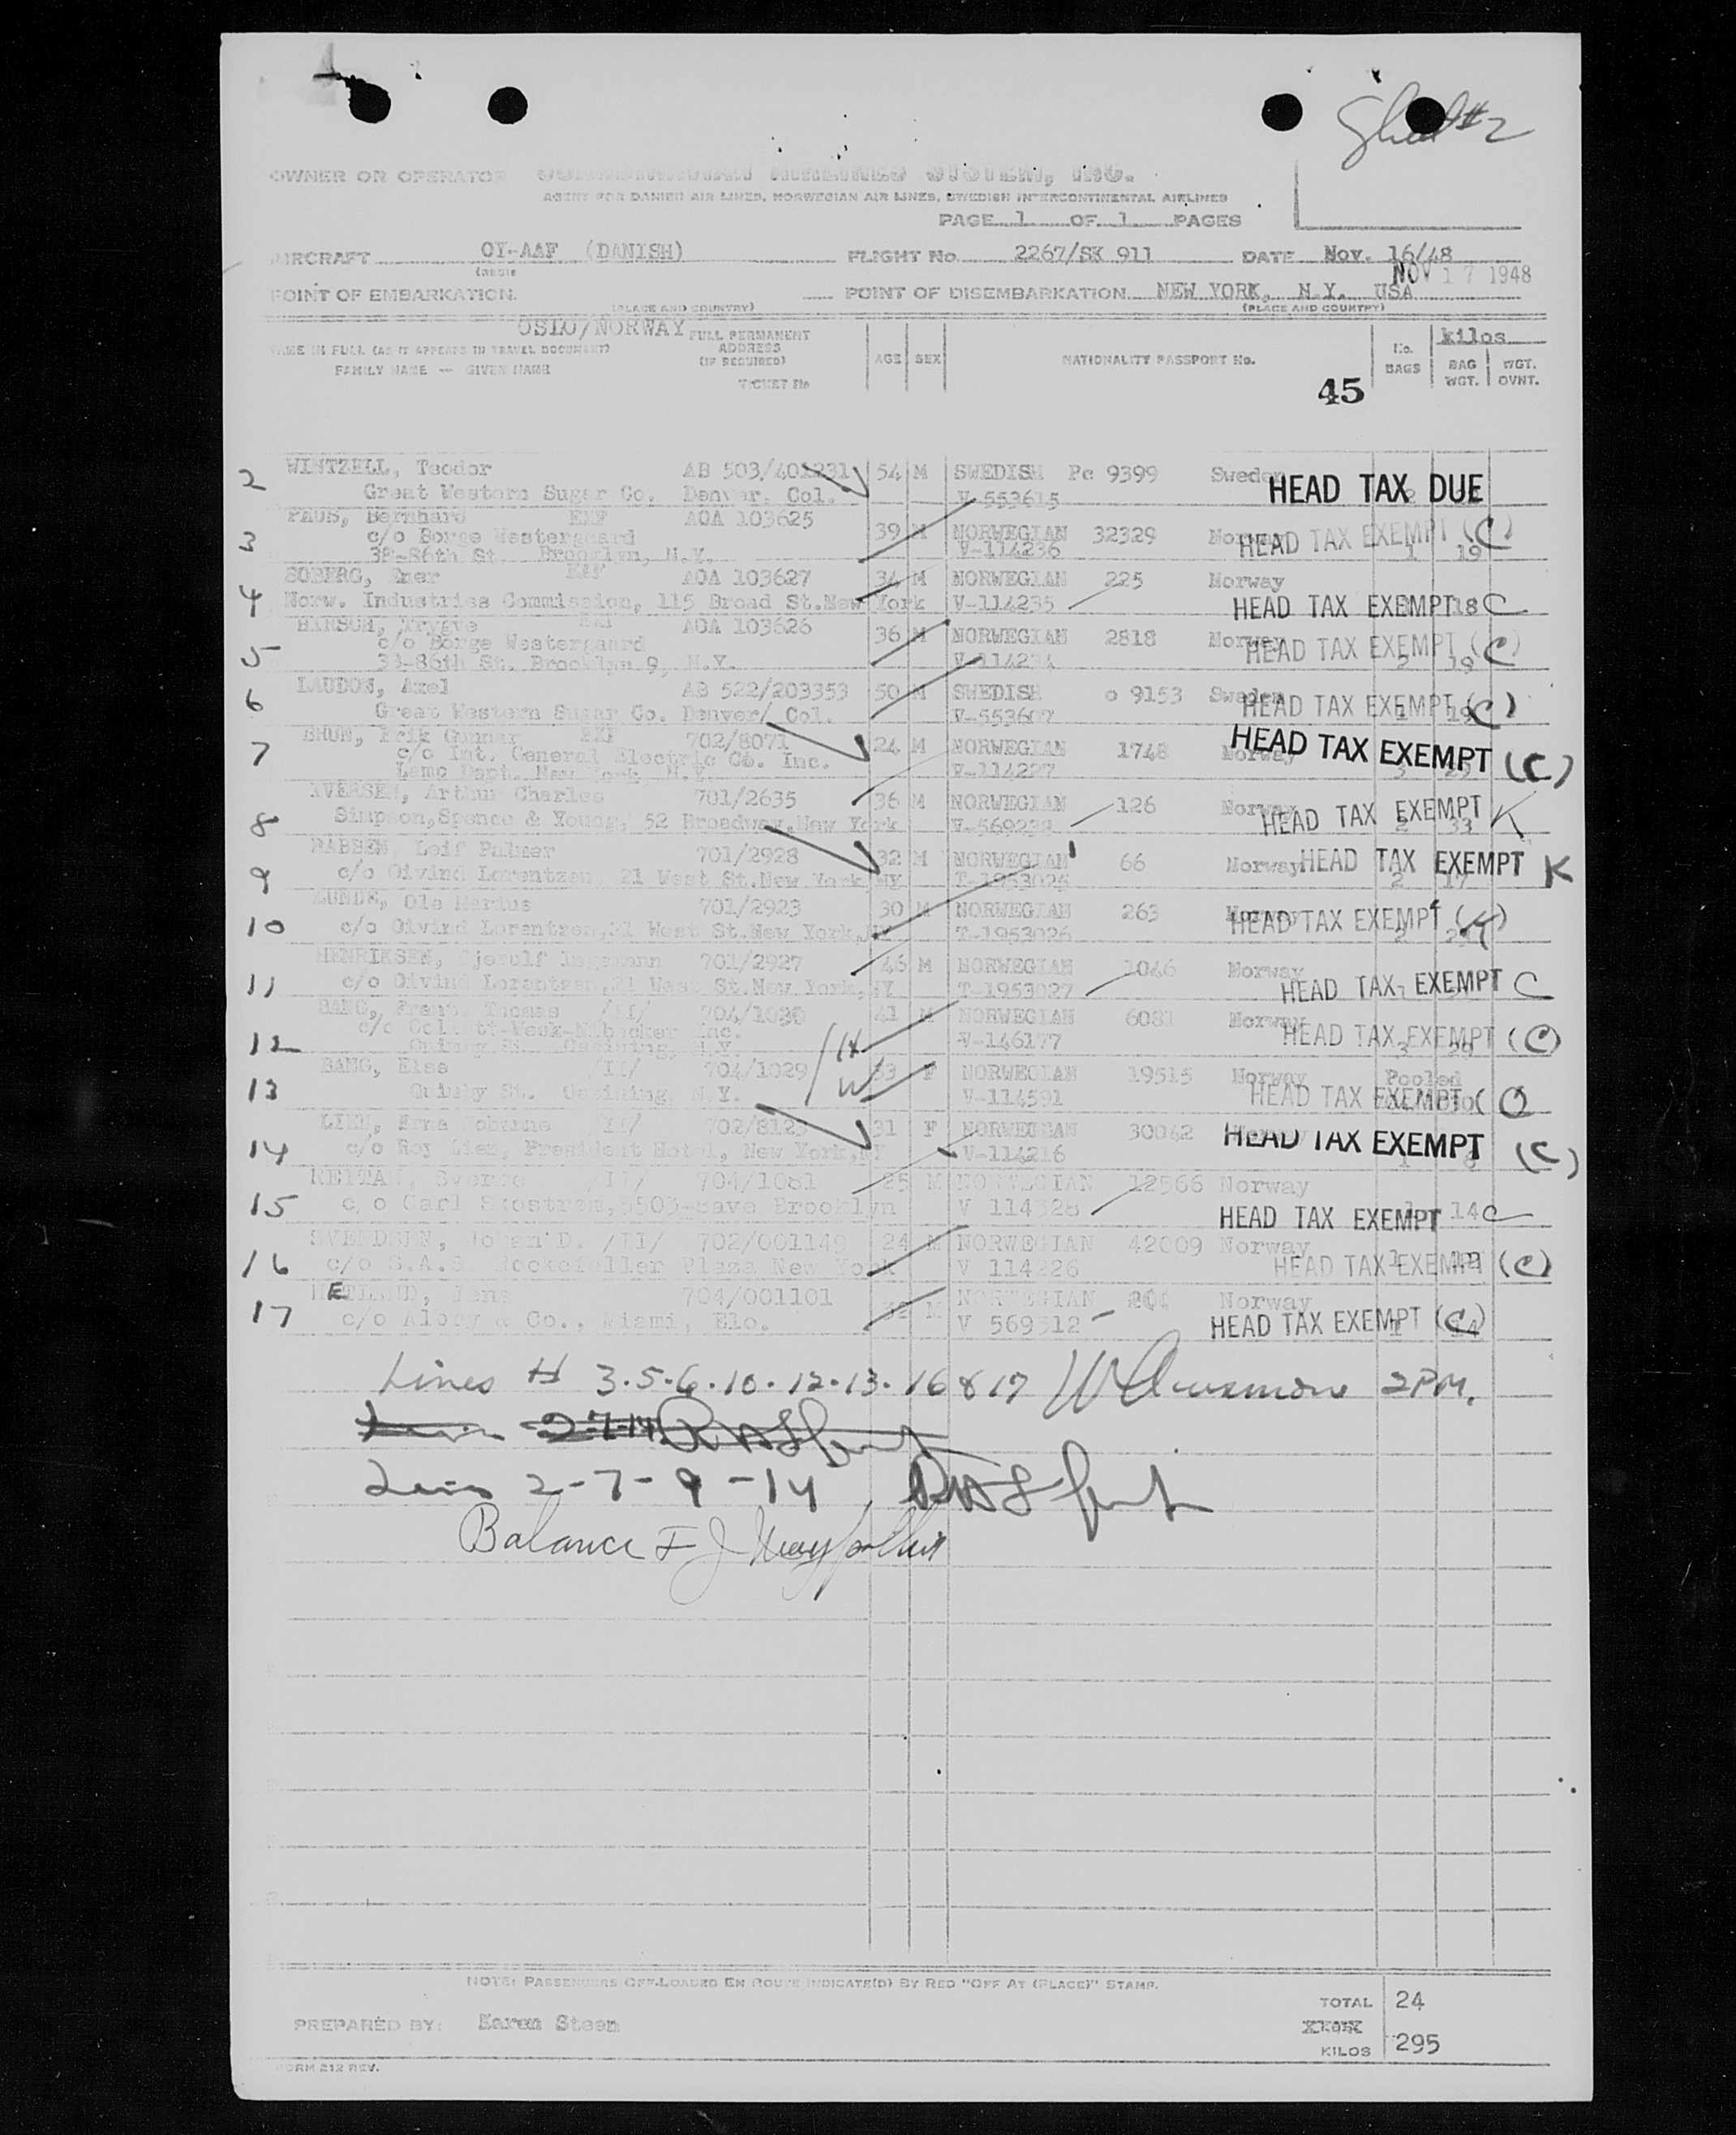 Sheet #2
OWNER OR OPERATOR SCANDINAVIAN AIRLINES SYSTEM, INC.
AGENT FOR DANISH AIR LINES, NORWEGIAN AIR LINES, SWEDISH INTERCONTINENTAL AIRLINES
PAGE 1 OF 1 PAGES
AIRCRAFT OY-AAF (DANISH) FLIGHT No. 2267/SK 911 DATE Nov. 16/48
NOV 17 1948
POINT OF EMBARKATION POINT OF DISEMBARKATION NEW YORK, N.Y. USA
(PLACE AND COUNTRY) (PLACE AND COUNTRY)
OSLO/NORWAY
NAME IN FULL (AS IT APPEARS IN TRAVEL DOCUMENT) FULL PERMANENT ADDRESS (IF REQUIRED) AGE SEX NATIONALITY PASSPORT No. No. BAGS kilos BAG WGT. WGT. OVNT.
FAMILY NAME — GIVEN NAME TICKET No
45
2 WINTZELL, Teodor AB 503/401231 54 M SWEDISH Pc 9399 Sweden HEAD TAX DUE
Great Western Sugar Co. Denver, Col. V-553615
3 PAUS, Bernhard AOA 103625 39 M NORWEGIAN 32329 Norway HEAD TAX EXEMPT (C)
c/o Borge Westergaard V-114236 1 19
38-86th St. Brooklyn, N.Y.
4 SOBERG, AOA 103627 34 M NORWEGIAN 225 Norway
Norw. Industries Commission, 115 Broad St. New York V-114235 HEAD TAX EXEMPT 18 C
5 Trygve AOA 103626 36 M NORWEGIAN 2818 Norway HEAD TAX EXEMPT (C)
c/o Borge Westergaard 2 19
38-86th St. Brooklyn 9, N.Y. V-114234
6 LAUDON, Axel AB 522/203353 50 M SWEDISH o 9153 Sweden HEAD TAX EXEMPT (C)
Great Western Sugar Co. Denver/ Col. V-553607
7 BRUN, Erik Gunnar 702/8071 24 M NORWEGIAN 1748 Norway HEAD TAX EXEMPT (C)
c/o Int. General Electric Co. Inc. V-114227
Lamp Dept. New York, N.Y.
8 IVERSEN, Arthur Charles 701/2635 36 M NORWEGIAN 126 Norway HEAD TAX EXEMPT K
Simpson, Spence & Young, 52 Broadway, New York V-569238 2 33
9 RABBEN, Leif Palmer 701/2928 32 M NORWEGIAN 66 Norway HEAD TAX EXEMPT K
c/o Oivind Lorentzen, 21 West St. New York NY T-1953025 2 17
10 Ole Marius 701/2923 30 M NORWEGIAN 263 Norway HEAD TAX EXEMPT
c/o Oivind Lorentzen, 21 West St. New York, NY T-1953026
11 HENRIKSEN, 701/2927 46 M NORWEGIAN 1046 Norway
c/o Oivind Lorentzen, 21 West St. New York, NY T-1953027 HEAD TAX EXEMPT C
12 BANG, Frants Thomas /II/ 704/1030 41 M NORWEGIAN 6081 Norway HEAD TAX EXEMPT (C)
Inc. V-146177
Quimby St. Ossining, N.Y. H
13 BANG, Else /II/ 704/1029 33 F NORWEGIAN 19515 Norway Pooled
Quimby St. Ossining, N.Y. W V-114591 HEAD TAX EXEMPT (C)
14 LIEN, Erna /II/ 702/8123 31 F NORWEGIAN 30042 Norway HEAD TAX EXEMPT (C)
c/o Roy Lien, President Hotel, New York, NY V-114216 1 8
15 REITAN, Sverre /II/ 704/1081 25 M NORWEGIAN 12566 Norway
c/o Carl Brooklyn V 114328 HEAD TAX EXEMPT 14 C
16 SVENDSEN, Johan D. /II/ 702/001149 24 M NORWEGIAN 42009 Norway
c/o S.A.S. Rockefeller Plaza New York HEAD TAX EXEMPT (C)
17 Jens 704/001101 M NORWEGIAN Norway
c/o & Co., Miami, V 569312 HEAD TAX EXEMPT (C)
Lines # 3.5.6.10.12.13.16 & 17 2PM.
Lines 2-7-9-14
Balance
NOTE: PASSENGERS OFF-LOADED EN ROUTE INDICATE(D) BY RED "OFF AT (PLACE)" STAMP.
TOTAL 24
PREPARED BY: Karen Steen
KILOS 295
FORM 212 REV.